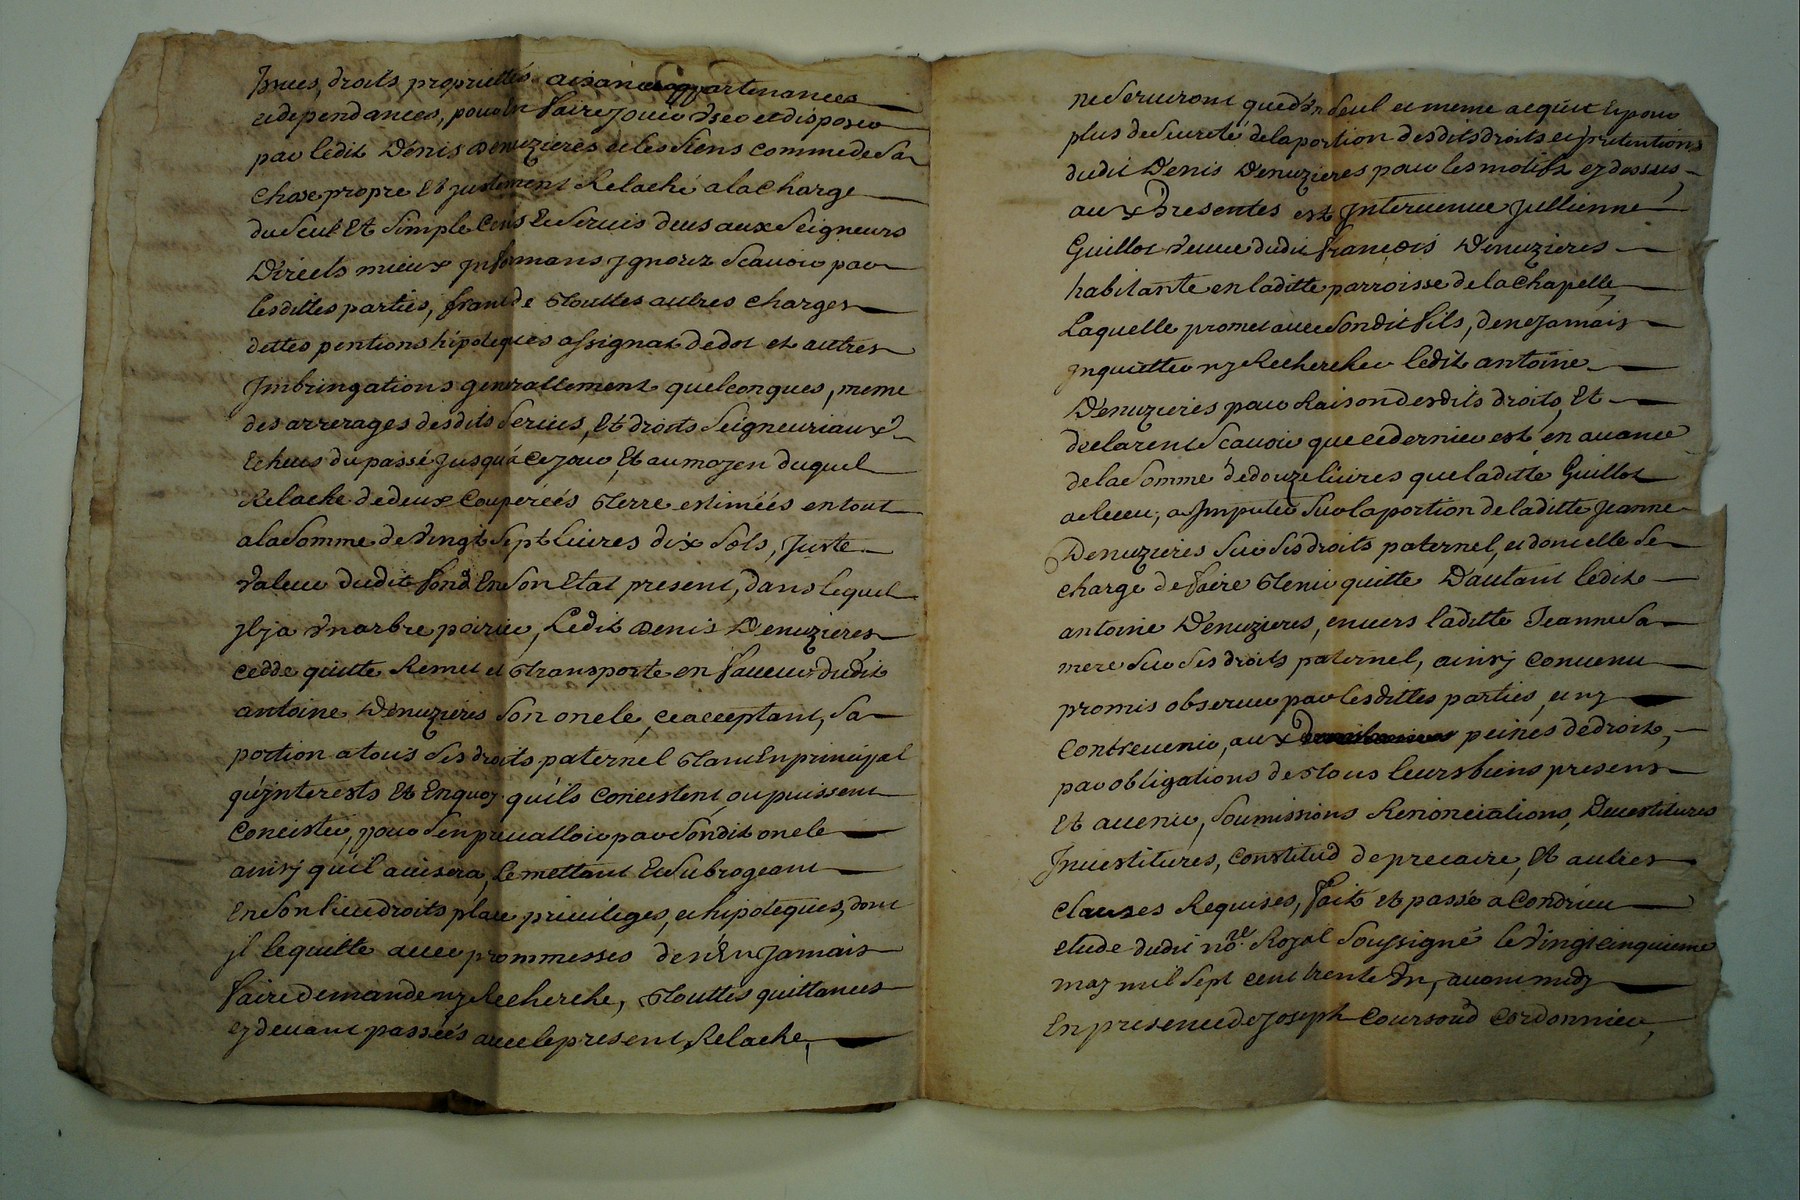 Jssues, droits proprietés aisances appartenances
et dependances, pour En faire Jouir User et disposer
par ledit Denis Denuzieres de les siens comme de sa
chose propre Et justement Relaché a la charge
du seul Et simple Cens Et Servis deus aux Seigneurs
Directs mieux Jnformans Jgnorez Scavoir par
lesdittes parties, franc de Touttes autres charges
dettes pentions hipoteques assignat de dot et autres
Jmbringations generallement quelconques, meme
des arrerages desdits Servis, Et droits Seigneuriaux
Echeus du passé Jusqu'a Ce jour, Et au moyen duquel
Relache de deux Couperéés Terre estiméés en tout
a la Somme de Vingt Sept Livres dix Sols, Juste
Valeur dudit fond En Son Etat present, dans lequel
Jl y a Vn arbre poirier, Ledit Denis Denuzieres
cedde quitte Remet et Transporte en faveur dudit
antoine Denuzieres Son oncle, ce acceptant, Sa
portion a tous Ses droits paternel Tant En principal
qu'jnterests Et En quoy qu'ils Concistent, ou puissent
Concister, pour S'en prevalloir par Sondit oncle
ainsy qu'il avisera, Le mettant Et Subrogeant
En Son lieu droits place privileges, et hipoteques, dont
jl le quitte avec prommesses de n'En Jamais
faire demande ny Recherche, Touttes quittances
cy devant passéés avec le present Relache,
ne Serviront que d'Vn Seul et meme acquit Et pour
plus de Seureté de la portion desdits droits et pretentions
dudit Denis Denuzieres pour les motifs cy dessus
aux Presentes est Jntervenue Jullienne
Guillot Veuve dudit françois Denuzieres
habitante en laditte parroisse de la Chapelle,
Laquelle promet avec Sondit fils, de ne Jamais
jnquietter ny Rechercher ledit antoine
Denuzieres pour Raison desdits droits, Et
declarent Scavoir que ce dernier est en avance
de la Somme de douze livres que laditte Guillot
a Receu, a Jmputer Sur la portion de laditte Jeanne
Denuzieres Sur Ses droits paternel, et dont elle Se
charge de faire Tenir quitte D'autant ledit
antoine Denuzieres, envers laditte Jeanne Sa
mere Sur Ses droits paternel, ainsy Convenu
promis observer par lesdittes parties, et ny
Contrevenir, aux peines de droit,
par obligations de Tous leurs biens presens
Et avenir, Soumissions Renonciations, Devestitures
Jnvestitures, Constitud de precaire, Et autres
Clauses Requises, fait et passé a Condrieu
etude dudit nore. Royal Soussigné le Vingt cinquieme
may mil Sept cent trente Vn, avant midy
En presence de Joseph Coursoud Cordonnier,